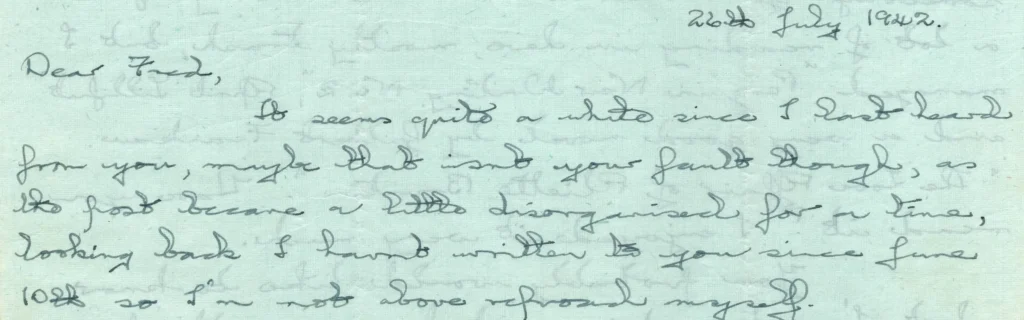 26th July 1942.
Dear Fred,
It seems quite a while since I last heard
from you, maybe that isn't your fault though, as
the post became a little disorganised for a time,
looking back I havn't written to you since June
10th so I'm not above reproach myself.